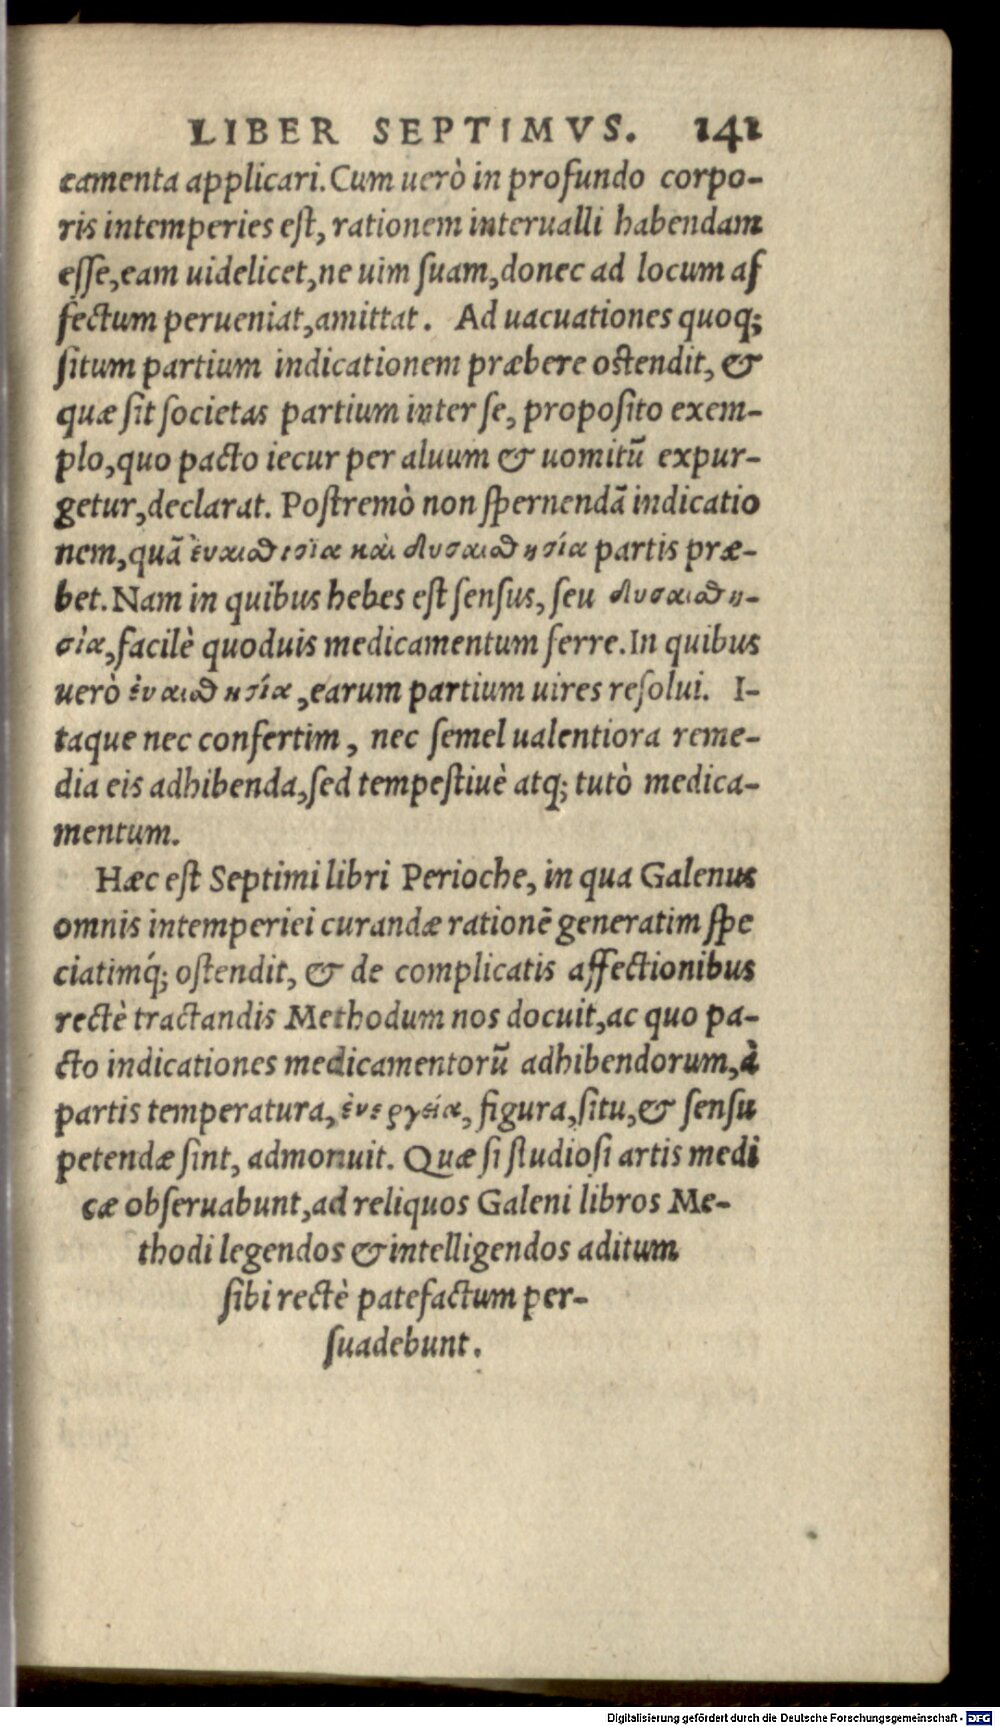 LIBER SEPTIMVS. 141
camenta applicari. Cum uerò in profundo corpo-
ris intemperies est, rationem interualli habendam
esse, eam uidelicet, ne uim suam, donec ad locum af
fectum perueniat, amittat. Ad uacuationes quoq;
situm partium indicationem præbere ostendit, &
quæ sit societas partium inter se, proposito exem-
plo, quo pacto iecur per aluum & uomitũ expur-
getur, declarat. Postremò non spernendã indicatio
nem, quã ἐυαιϑισία καὶ δυσαιϑησία partis præ-
bet. Nam in quibus hebes est sensus, seu δυσαιϑη-
σία, facilè quoduis medicamentum ferre. In quibus
uerò ἐυαιϑησία, earum partium uires resolui. I-
taque nec confertim, nec semel ualentiora reme-
dia eis adhibenda, sed tempestiuè atq; tutò medica-
mentum.
Hæc est Septimi libri Perioche, in qua Galenus
omnis intemperiei curandæ rationẽ generatim spe
ciatimq́; ostendit, & de complicatis affectionibus
rectè tractandis Methodum nos docuit, ac quo pa-
cto indicationes medicamentorũ adhibendorum, à
partis temperatura, ἐνεργεία, figura, situ, & sensu
petendæ sint, admonuit. Quæ si studiosi artis medi
cæ obseruabunt, ad reliquos Galeni libros Me-
thodi legendos & intelligendos aditum
sibi rectè patefactum per-
suadebunt.
Digitalisierung gefördert durch die Deutsche Forschungsgemeinschaft - DFG